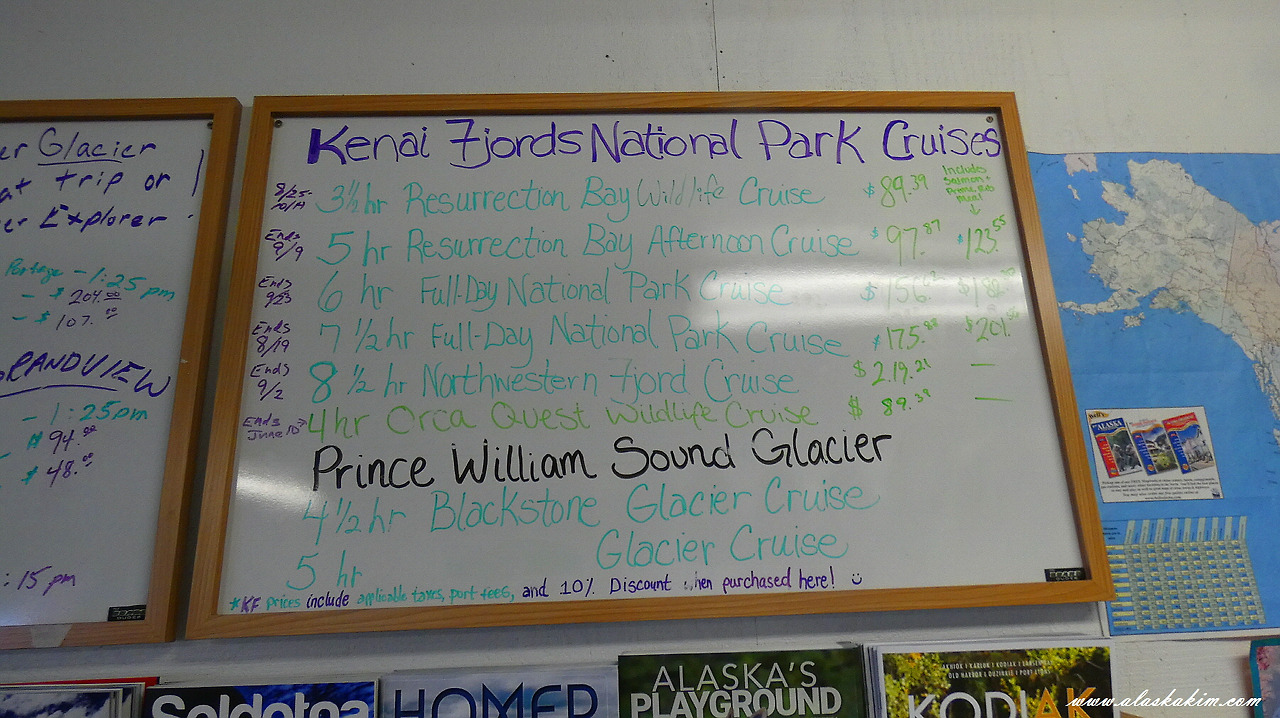 Glacier
trip or
Explorer
Portage - 1:25 pm
- $ 204.00
- $ 107.00
GRANDVIEW
- 1:25pm
$ 94.00
$ 48.00
:15 pm
Kenai Fjords National Park Cruises
3½ hr Resurrection Bay Wildlife Cruise $89.39
Includes
Salmon &
Prime Rib
Meal
Ends 9/9 5 hr Resurrection Bay Afternoon Cruise $97.87 $123.55
Ends 9/23 6 hr Full-Day National Park Cruise $156.
Ends 8/19 7 ½ hr Full-Day National Park Cruise $175. $201.
Ends 9/2 8 ½ hr Northwestern Fjord Cruise $219.21 —
Ends June 10 4 hr Orca Quest Wildlife Cruise $ 89.39 —
Prince William Sound Glacier
4 ½ hr Blackstone Glacier Cruise
5 hr Glacier Cruise
*KF prices include applicable taxes, port fees, and 10% Discount when purchased here!
ALASKA
Soldotna
HOMER
ALASKA'S
PLAYGROUND
KODIAK
www.alaskakim.com